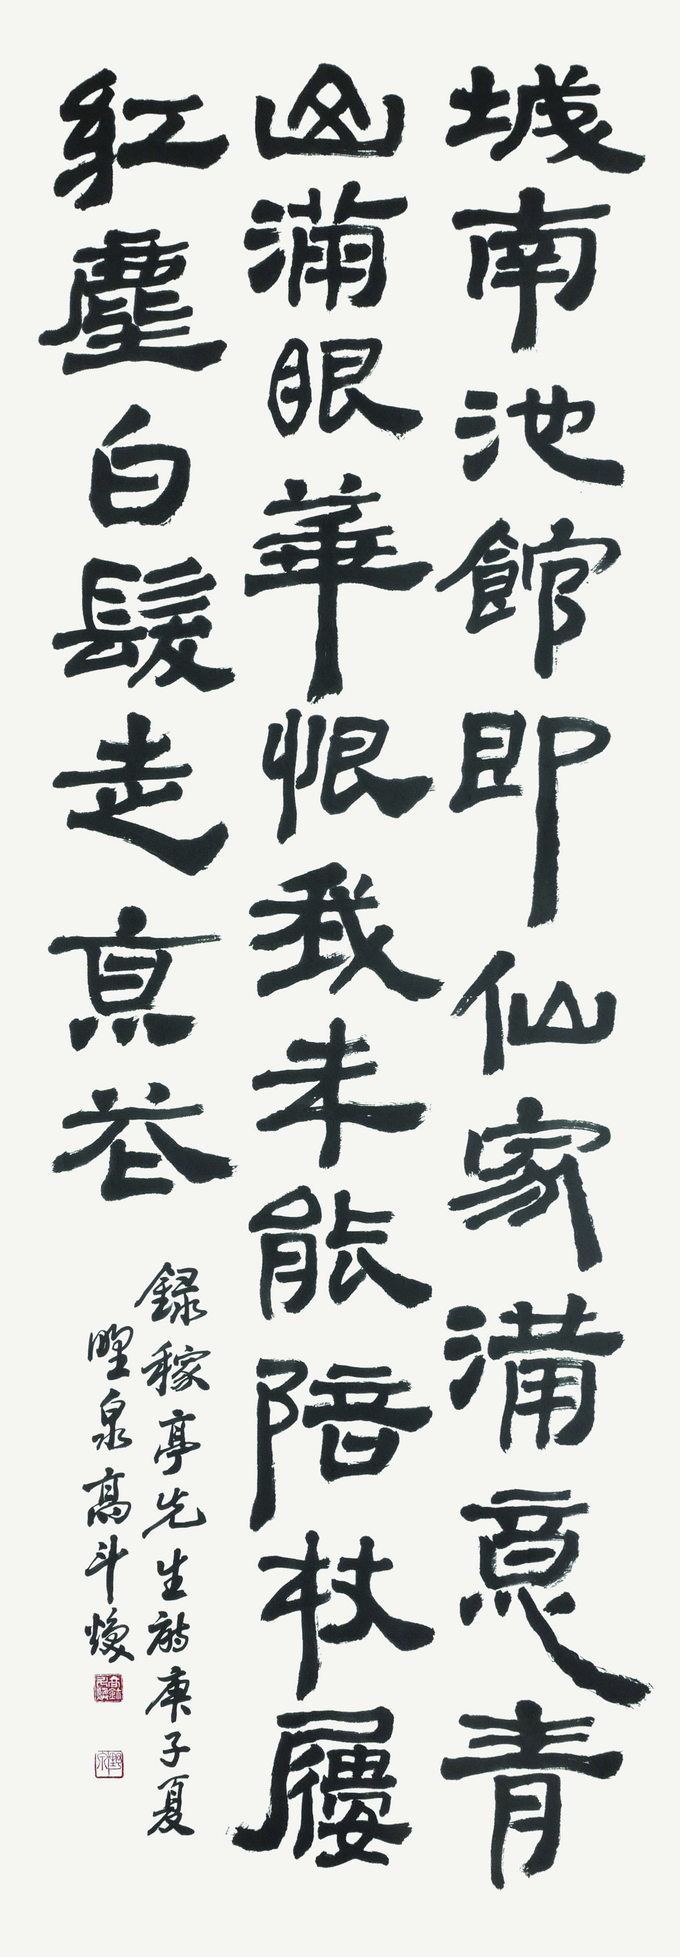 城南池館即仙家滿意青
山滿眼華恨我未能陪杖屨
紅塵白髮走亰花
錄稼亭先生詩庚子夏
野泉高斗煥